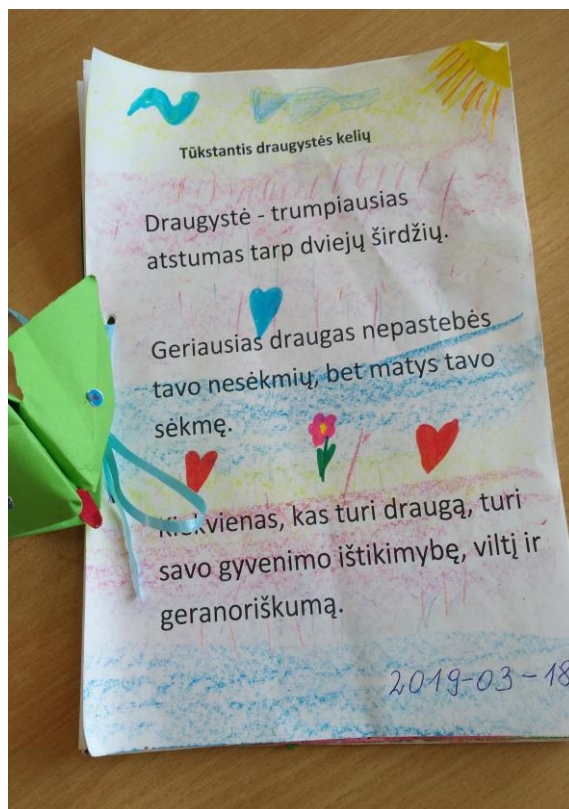 Tūkstantis draugystės kelių
Draugystė - trumpiausias
atstumas tarp dviejų širdžių.
Geriausias draugas nepastebės
tavo nesėkmių, bet matys tavo
sėkmę.
Kiekvienas, kas turi draugą, turi
savo gyvenimo ištikimybę, viltį ir
geranoriškumą.
2019-03-18